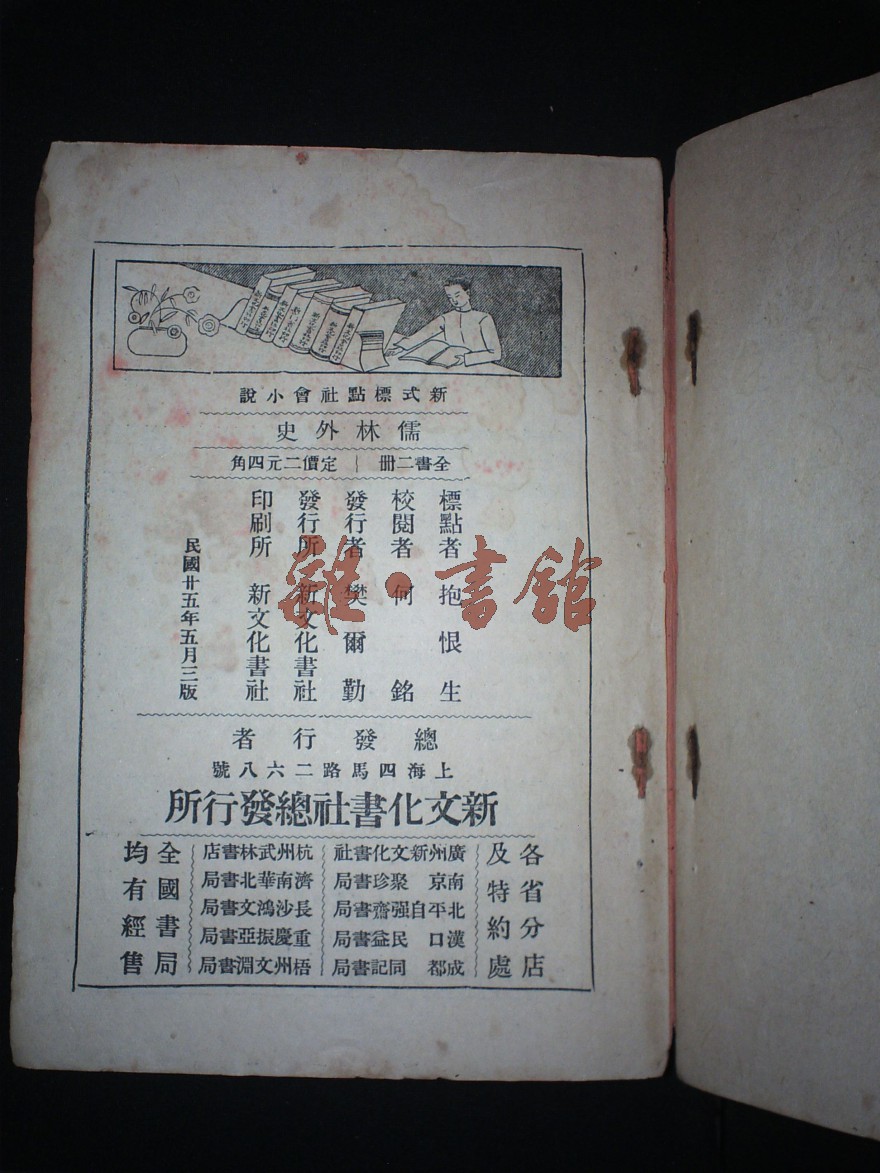 新式標點社會小說
儒林外史
全書二冊 定價二元四角
標點者 抱恨生
校閱者 何銘
發行者 樊爾勤
發行所 新文化書社
印刷所 新文化書社
民國廿五年五月三版
總發行者
上海四馬路二六八號
新文化書社總發行所
各省分店
及特約處
廣州新文化書社
南京聚珍書局
北平自强齋書局
漢口民益書局
成都同記書局
杭州武林書店
濟南華北書局
長沙鴻文書局
重慶振亞書局
梧州文淵書局
全國書局
均有經售
雜·書館